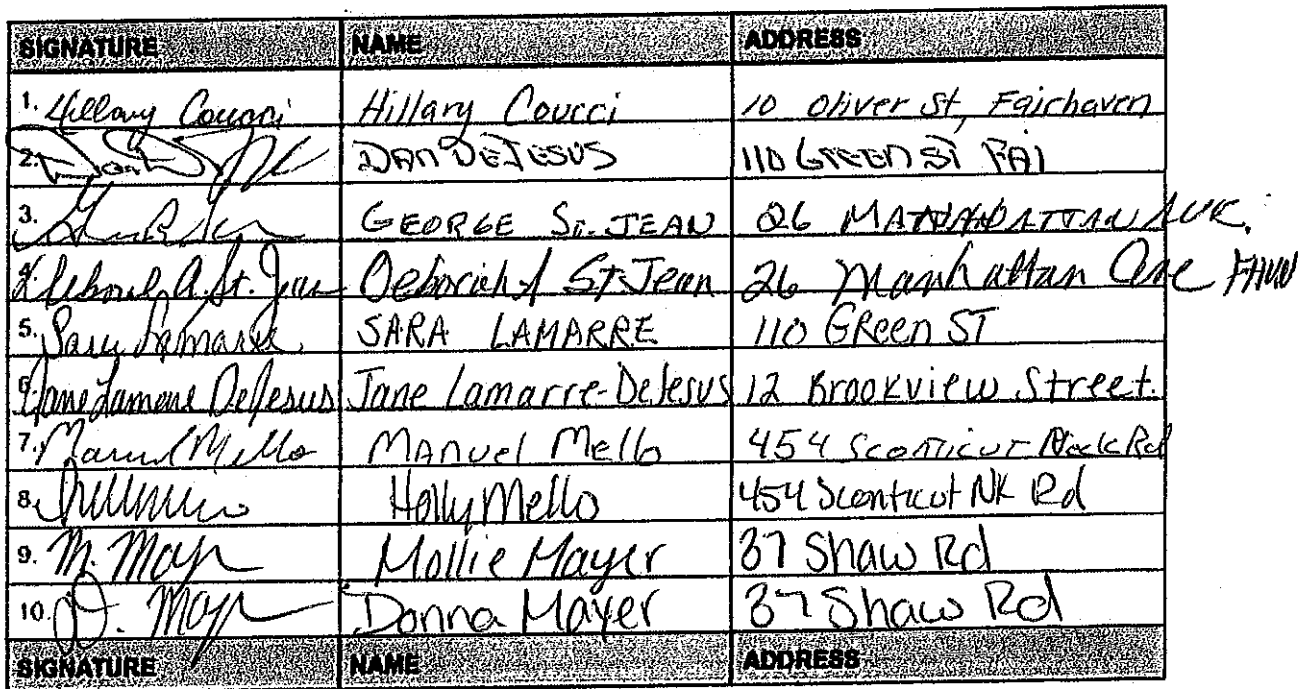 SIGNATURE NAME ADDRESS
1. Hillary Coucci Hillary Coucci 10 Oliver St, Fairhaven
2. DAN DEJESUS 110 GREEN ST FAI
3. GEORGE ST. JEAN 26 MANHATTAN AVE.
4. Deborah A. St. Jean Deborah A St. Jean 26 Manhattan Ave FHVN
5. Sara Lamarre SARA LAMARRE 110 GReen ST
6. Jane Lamarre DeJesus Jane Lamarre-DeJesus 12 Brookview Street.
7. Manuel Mello MANUel Mello 454 Sconticut Neck Rd
8. Holly Mello 454 Sconticut NK Rd
9. M. Mayer Mollie Mayer 37 Shaw Rd
10. D. Mayer Donna Mayer 37 Shaw Rd
SIGNATURE NAME ADDRESS